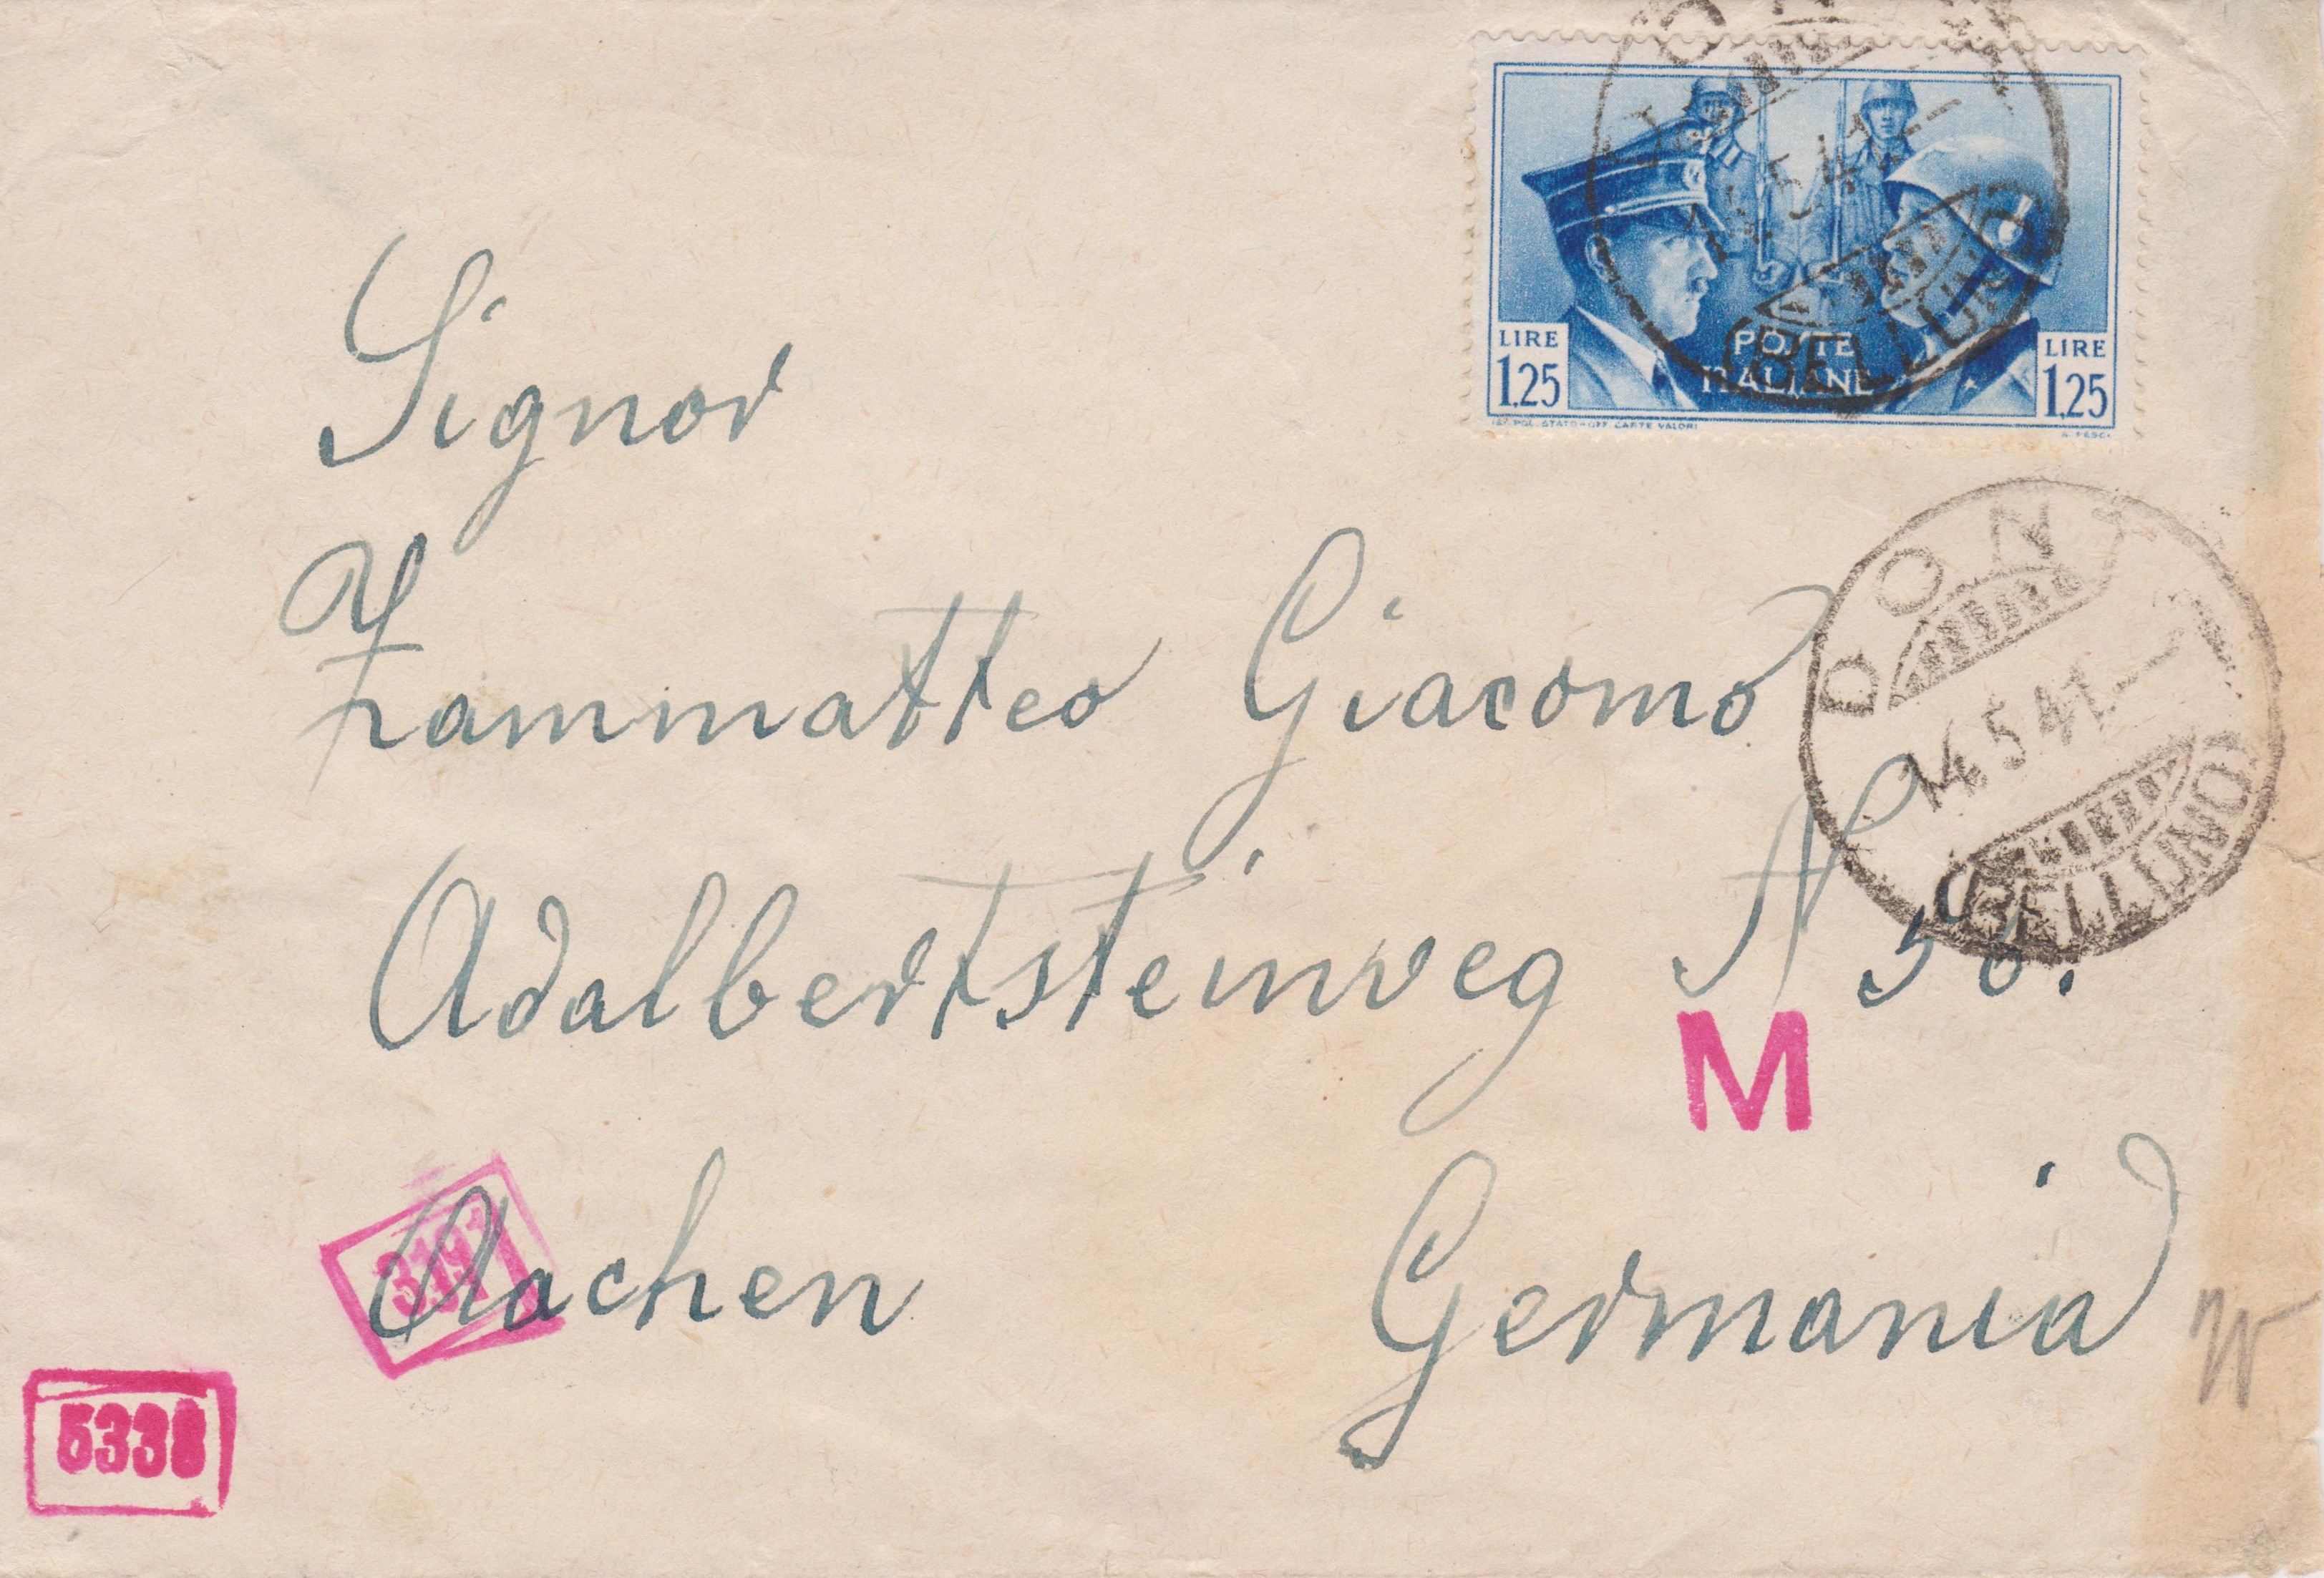 LIRE 1,25
POSTE ITALIANE
LIRE 1,25
IST. POL. STATO-OFF. CARTE VALORI
DONT
14.5.41
(BELLUNO)
Signor
Zammatteo Giacomo
Adalbertsteinweg N 56.
M
Aachen Germania
5338